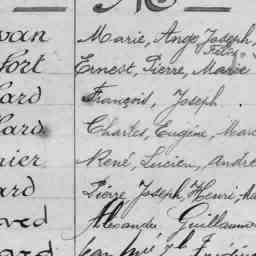 No
van Marie, Ange, Joseph,
Félix
fort Ernest, Pierre, Marie
lard François, Joseph
lard Charles, Eugène, Marc
nier René, Lucien, André
ard Pierre, Joseph, Henri, Ma
ved Alexandre Guillaume
oard Jean